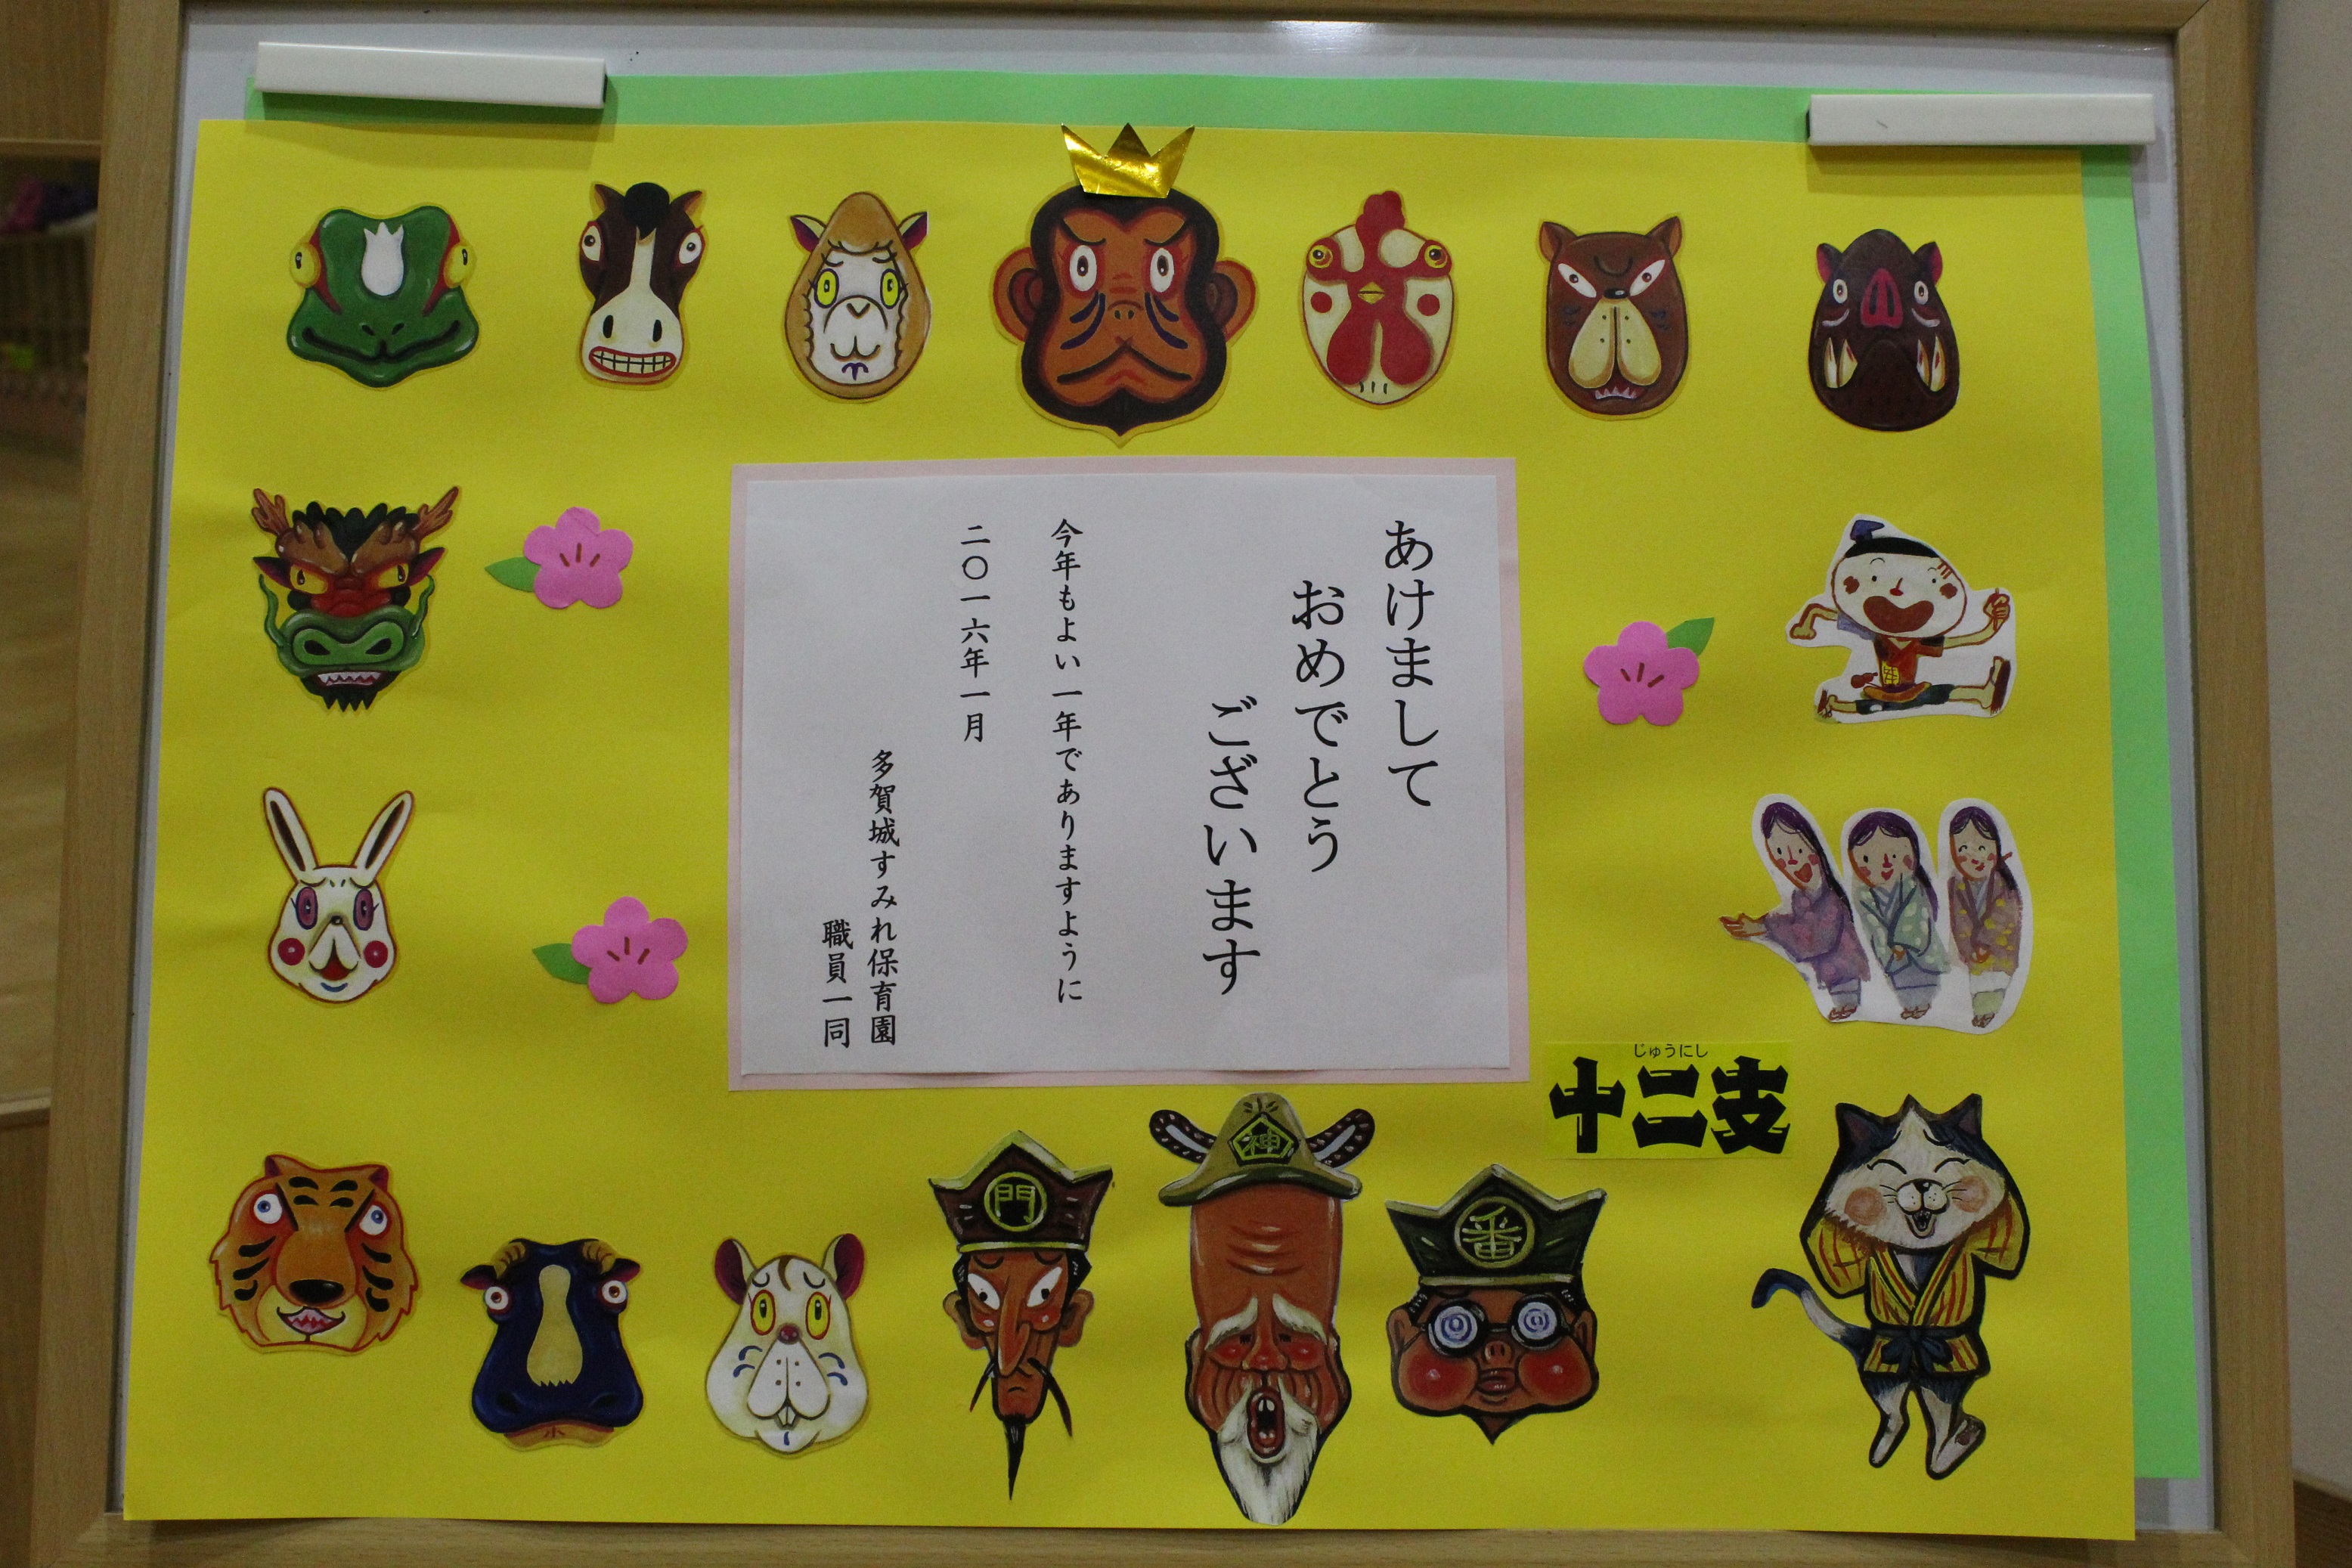 あけまして
おめでとう
ございます
今年もよい一年でありますように
二〇一六年一月
多賀城すみれ保育園
職員一同
じゅうにし
十二支
門
神
番